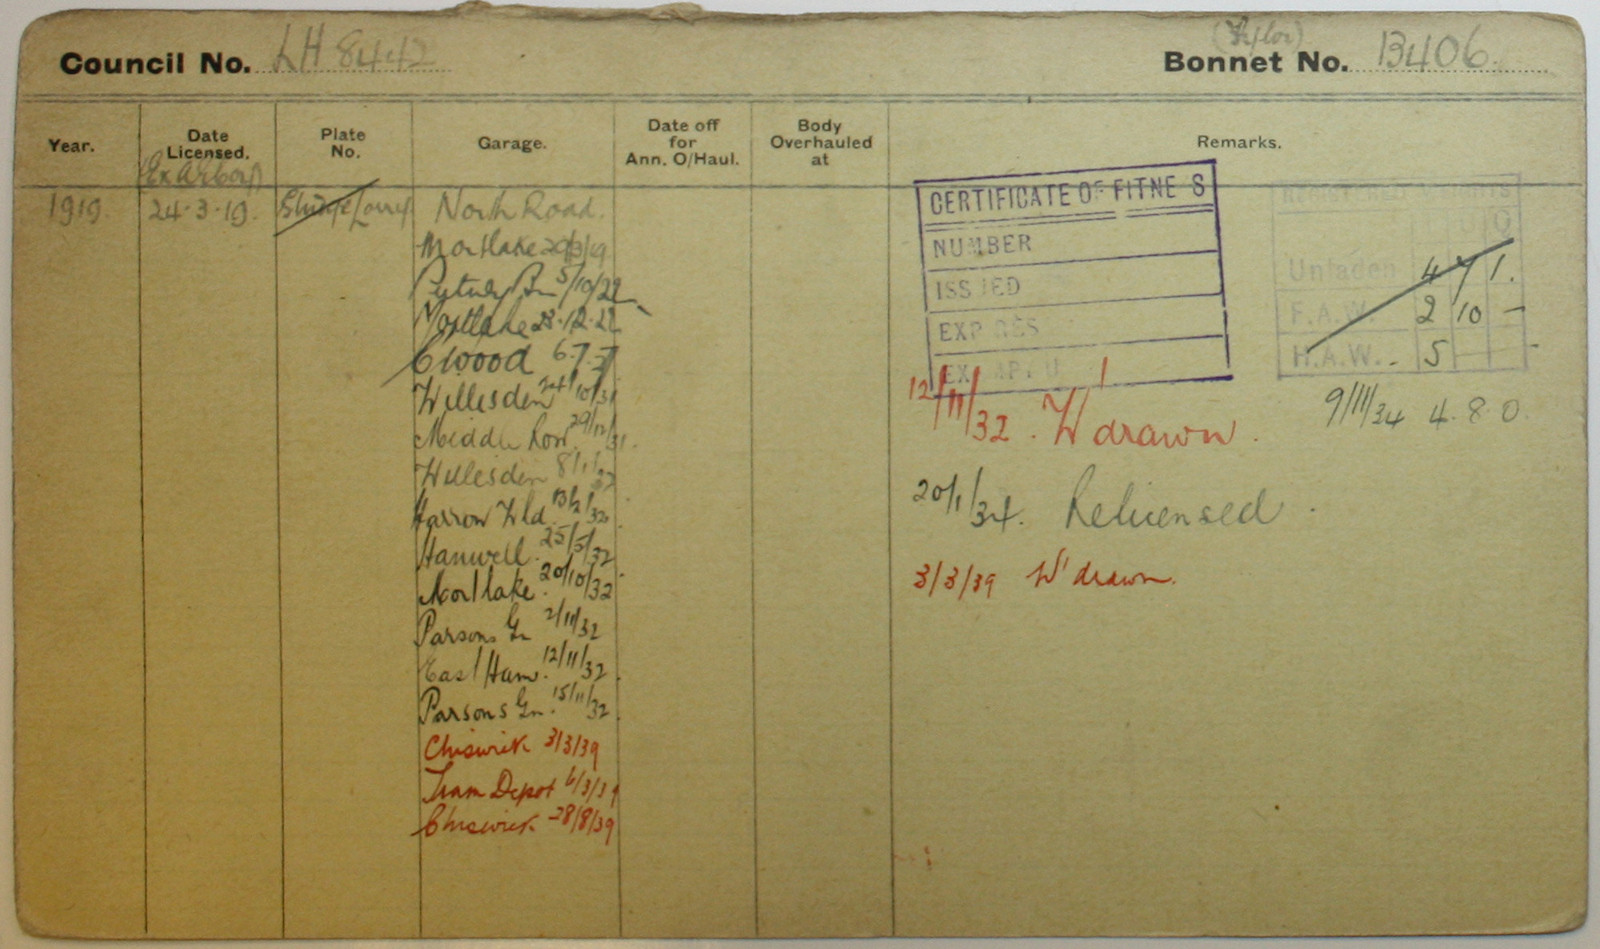 Council No. LH 8442
Bonnet No. B406.
Year.
Date Licensed.
Plate No.
Garage.
Date off for Ann. O/Haul.
Body Overhauled at
Remarks.
1919. 24-3-19. Lorry North Road.
Mortlake 29/3/19
Putney Br 5/10/22
Mortlake 28.12.22
C'wood 6.7.
Willesden 24/10/31
Middle Row 29/12/31.
Willesden 8/1/32
Harrow Wld. 13/2/32.
Hanwell. 25/5/32
Mortlake. 20/10/32
Parsons Gn 2/11/32
East Ham. 12/11/32
Parsons Gn. 15/11/32
Chiswick 3/3/39
Tram Depot 6/3/39
Chiswick 28/8/39
CERTIFICATE OF FITNE S
NUMBER
ISS ED
EXP RES
12/11/32. W'drawn.
20/1/34. Relicensed.
3/3/39 W'drawn.
REGISTERED WEIGHTS
Q
Unladen 4 7 1.
F.A.W. 2 10 -
H.A.W. 5 -
9/11/34 4. 8. 0.